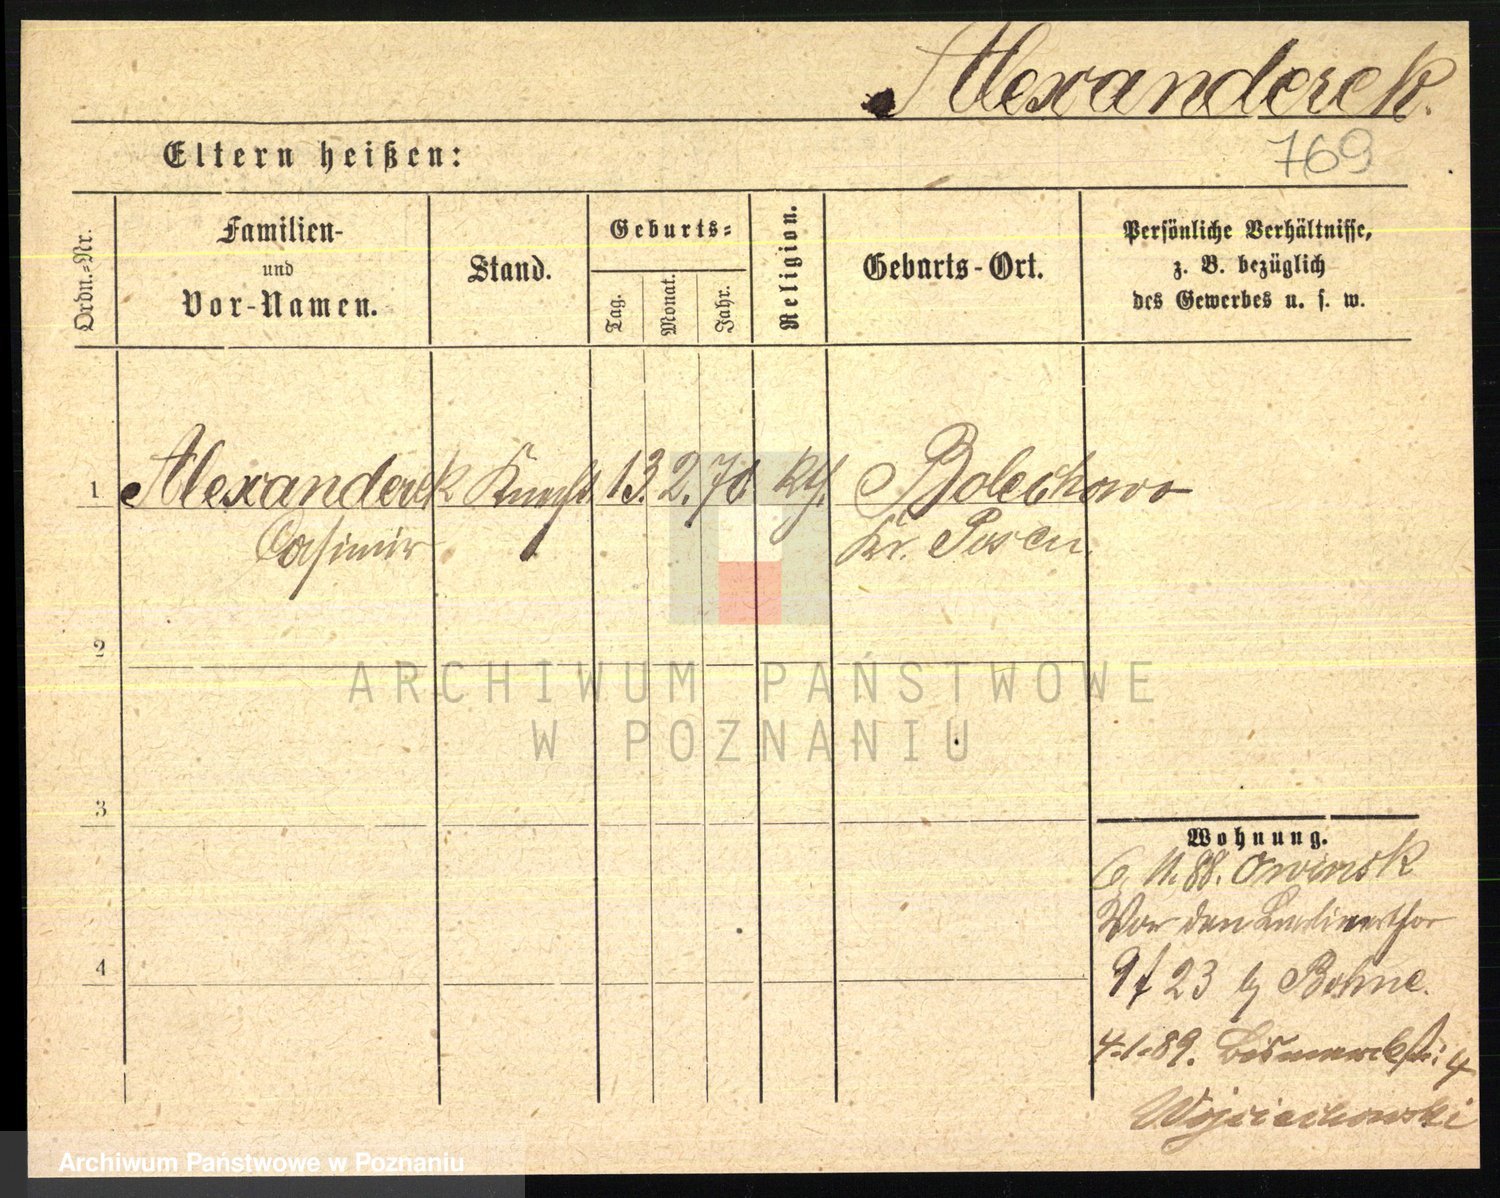 Alexanderek.
769
Eltern heißen:
Ordn.-Nr.
Familien-
und
Vor-Namen.
Stand.
Geburts-
Tag.
Monat.
Jahr.
Religion.
Geburts-Ort.
Persönliche Verhältnisse,
z. B. bezüglich
des Gewerbes u. s. w.
1 Alexanderek Knecht 13. 2. 70. kth. Bolechowo
Casimir Kr. Posen.
2
3
4
Wohnung.
6. 11. 88. Owinsk
Vor dem Berlinerthor
23 Bohne.
4.1.89. Bismarckstr. 4
Wojciechowski
ARCHIWUM PAŃSTWOWE
W POZNANIU
Archiwum Państwowe w Poznaniu